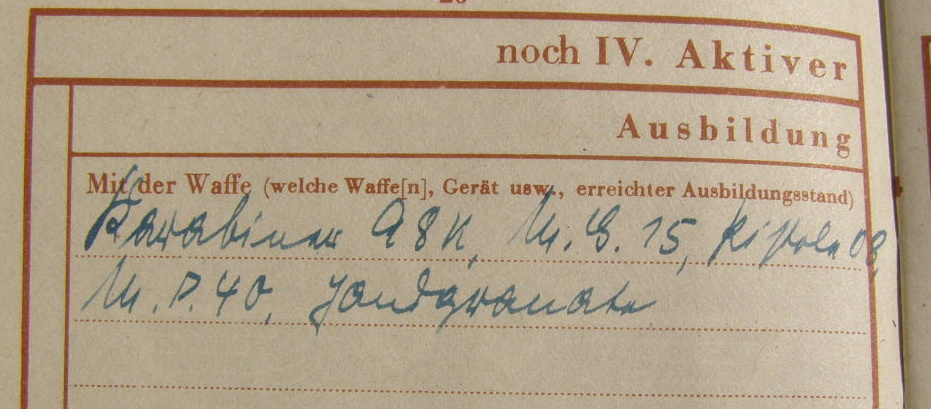 noch IV. Aktiver
Ausbildung
Mit der Waffe (welche Waffe[n], Gerät usw., erreichter Ausbildungsstand)
Karabiner 98K, M.G. 15, Pistole 08,
M.P. 40, Handgranate